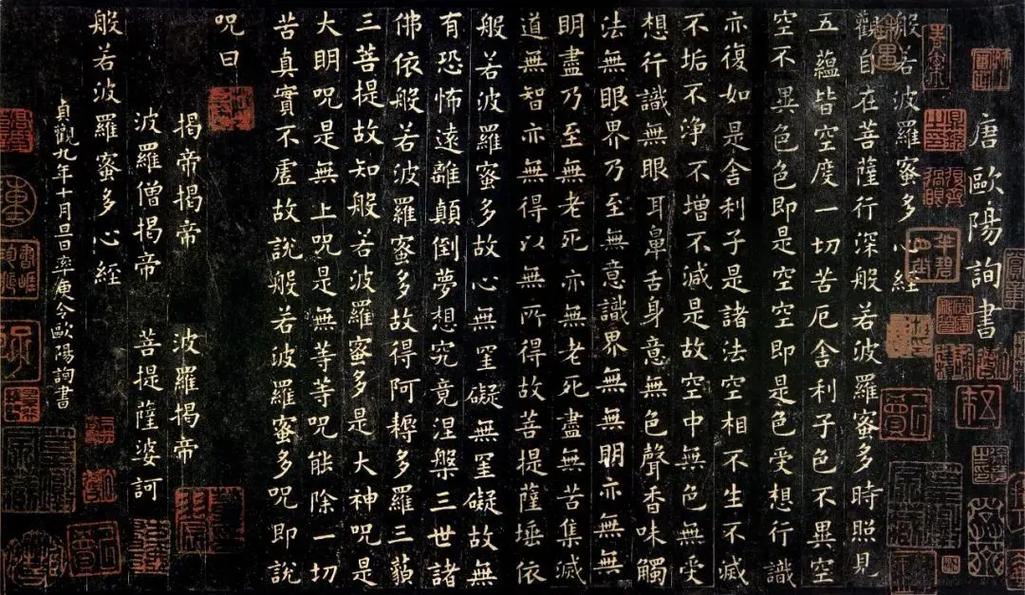 唐歐陽詢書
般若波羅蜜多心経
觀自在菩薩行深般若波羅蜜多時照見
五蘊皆空度一切苦厄舍利子色不異空
空不異色色即是空空即是色受想行識
亦復如是舍利子是諸法空相不生不滅
不垢不浄不增不減是故空中無色無受
想行識無眼耳鼻舌身意無色聲香味觸
法無眼界乃至無意識界無無明亦無無
明盡乃至無老死亦無老死盡無苦集滅
道無智亦無得以無所得故菩提薩埵依
般若波羅蜜多故心無罣礙無罣礙故無
有恐怖遠離顛倒夢想究竟涅槃三世諸
佛依般若波羅蜜多故得阿耨多羅三藐
三菩提故知般若波羅蜜多是大神咒是
大明咒是無上咒是無等等咒能除一切
苦真實不虛故說般若波羅蜜多咒即說
咒曰
揭帝揭帝 波羅揭帝
波羅僧揭帝 菩提薩婆訶
般若波羅蜜多心経
貞觀九年十月旦日率更令歐陽詢書